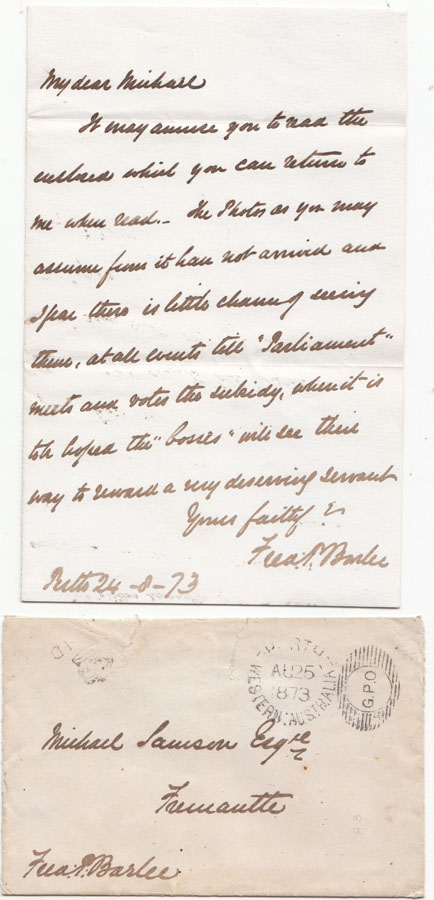 My dear Michael
It may amuse you to read the
enclosed which you can return to
me when read.- The Photos as you may
assume from it have not arrived and
I fear there is little chance of seeing
them, at all events till "Parliament"
meets and votes the subsidy, when it is
to be hoped the "bosses" will see their
way to reward a very deserving servant
Yours faithf
Fred. P. Barlee
Perth 24-8-73
WESTERN AUSTRALIA
AU 25
1873
G.P.O
Michael Samson Esqre
Fremantle
Fred. P. Barlee